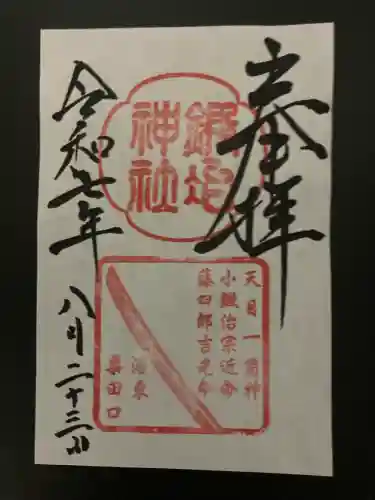 奉拝
鍛冶
神社
天目一箇神
小鍛冶宗近命
藤四郎吉光命
洛東
粟田口
令和七年
八月二十三日